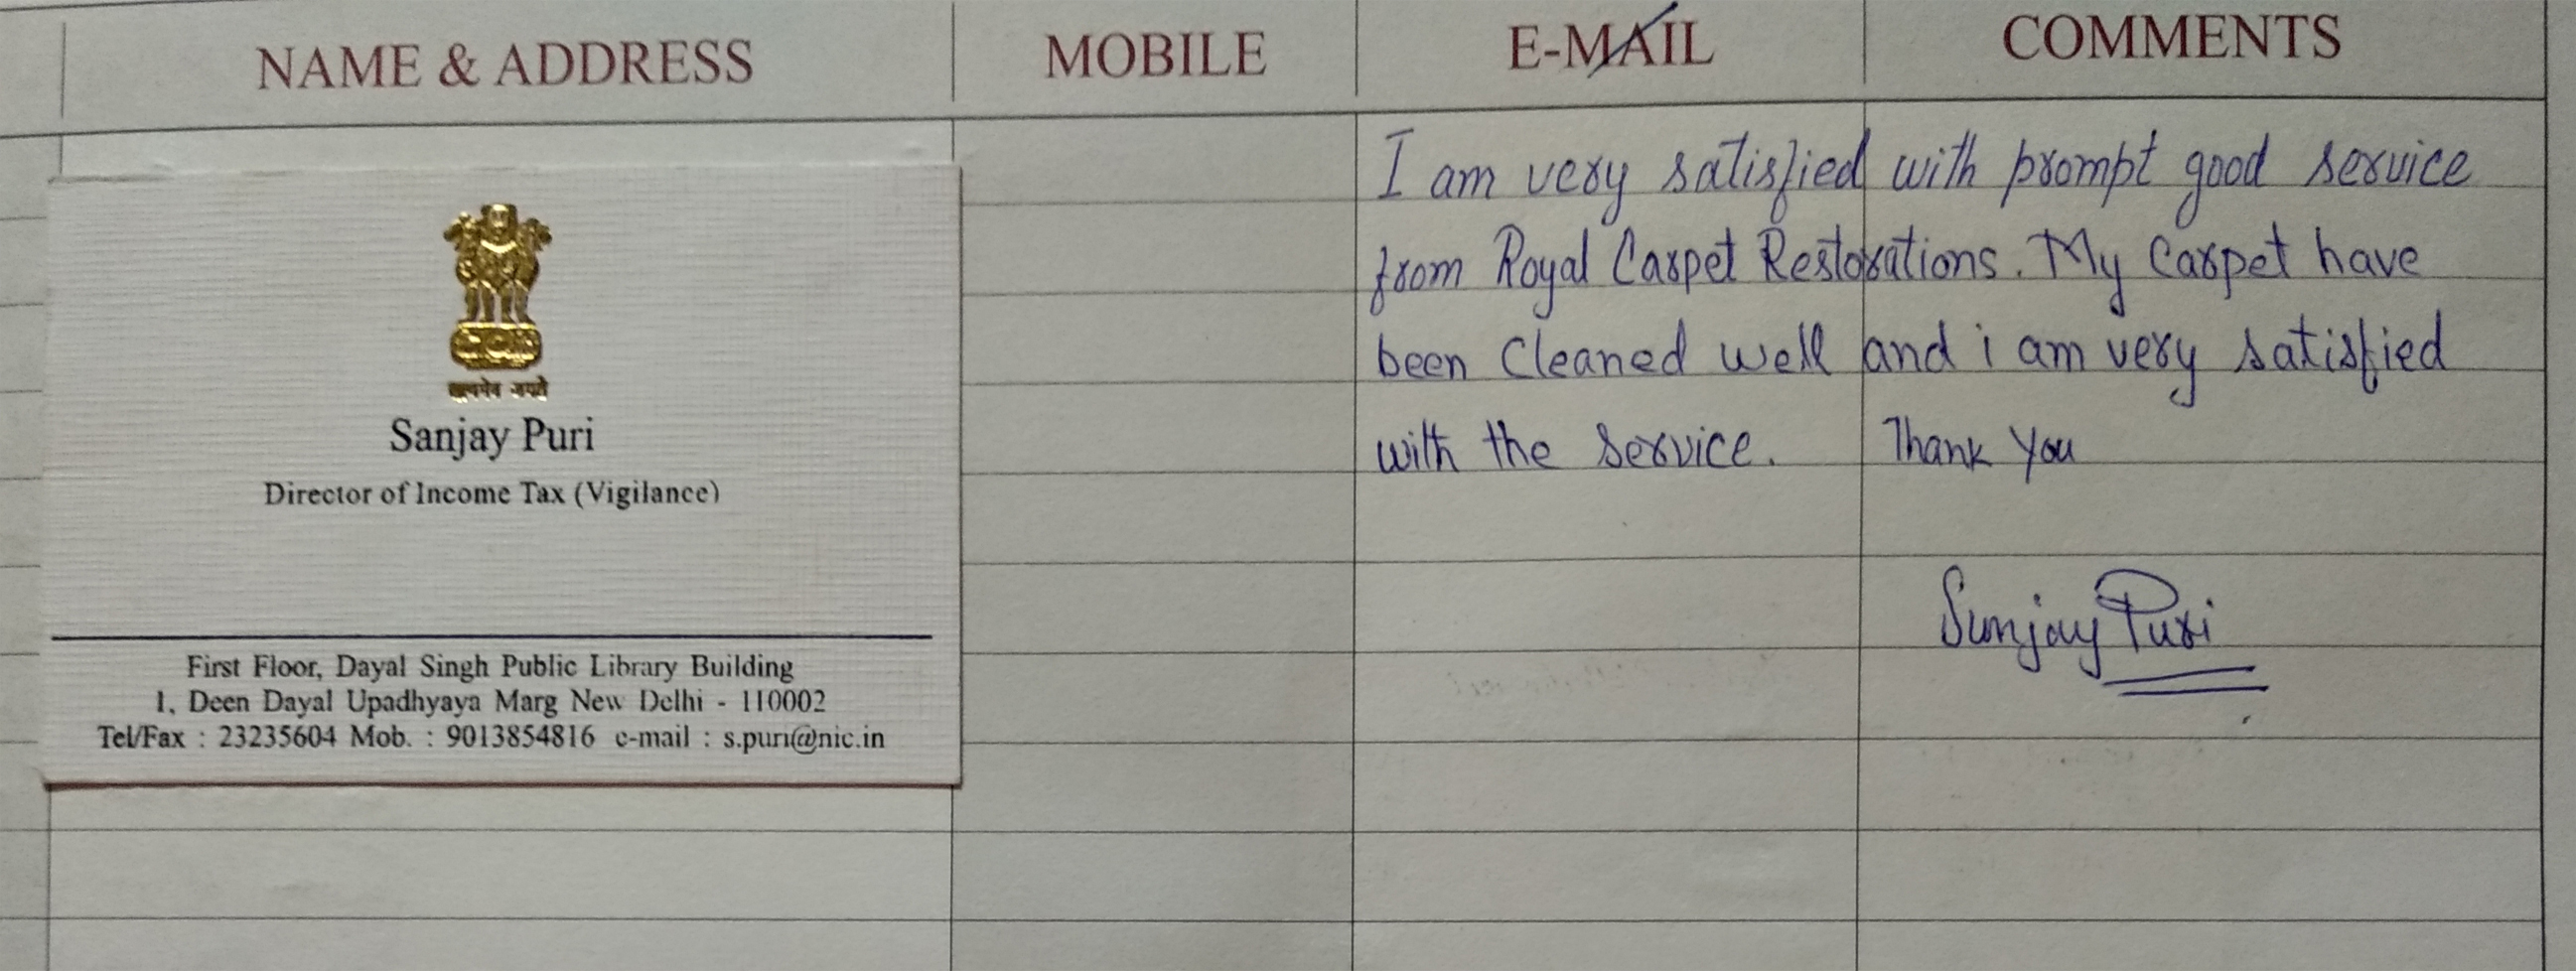 NAME & ADDRESS
MOBILE
E-MAIL
COMMENTS
सत्यमेव जयते
Sanjay Puri
Director of Income Tax (Vigilance)
First Floor, Dayal Singh Public Library Building
1, Deen Dayal Upadhyaya Marg New Delhi - 110002
Tel/Fax : 23235604 Mob. : 9013854816 e-mail : s.puri@nic.in
I am very satisfied with prompt good service
from Royal Carpet Restorations. My Carpet have
been Cleaned well and i am very satisfied
with the Service. Thank You
Sunjay Puri